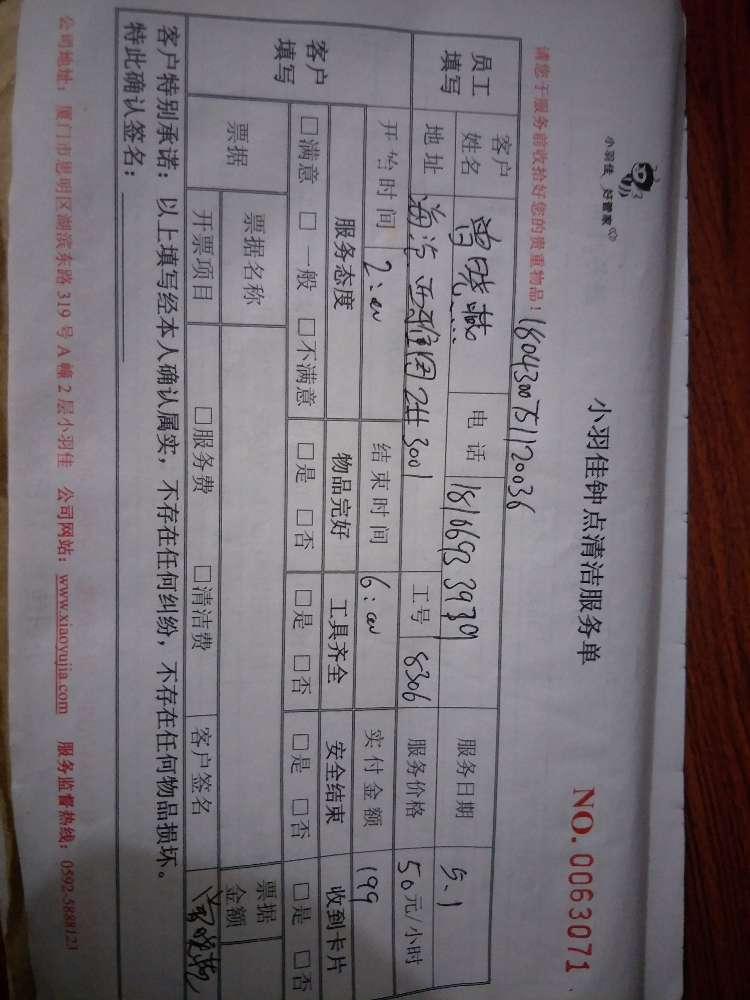 小羽佳 好管家
小羽佳钟点清洁服务单
NO.0063071
请您于服务前收拾好您的贵重物品！
1804300751120036
员工填写
客户姓名 曾晓 电话 服务日期 5.1
地址 海沧 2#3001 工号 8306 服务价格 50元/小时
开始时间 2:00 结束时间 6:00 实付金额 199
客户填写
服务态度 物品完好 工具齐全 安全结束 收到卡片
□满意 □一般 □不满意 □是 □否 □是 □否 □是 □否 □是 □否
票据 票据名称 票据金额
开票项目 □服务费 □清洁费 客户签名
客户特别承诺：以上填写经本人确认属实，不存在任何纠纷，不存在任何物品损坏。
特此确认签名：
公司地址：厦门市思明区湖滨东路319号A幢2层小羽佳 公司网站：www.xiaoyujia.com 服务监督热线：0592-5888123